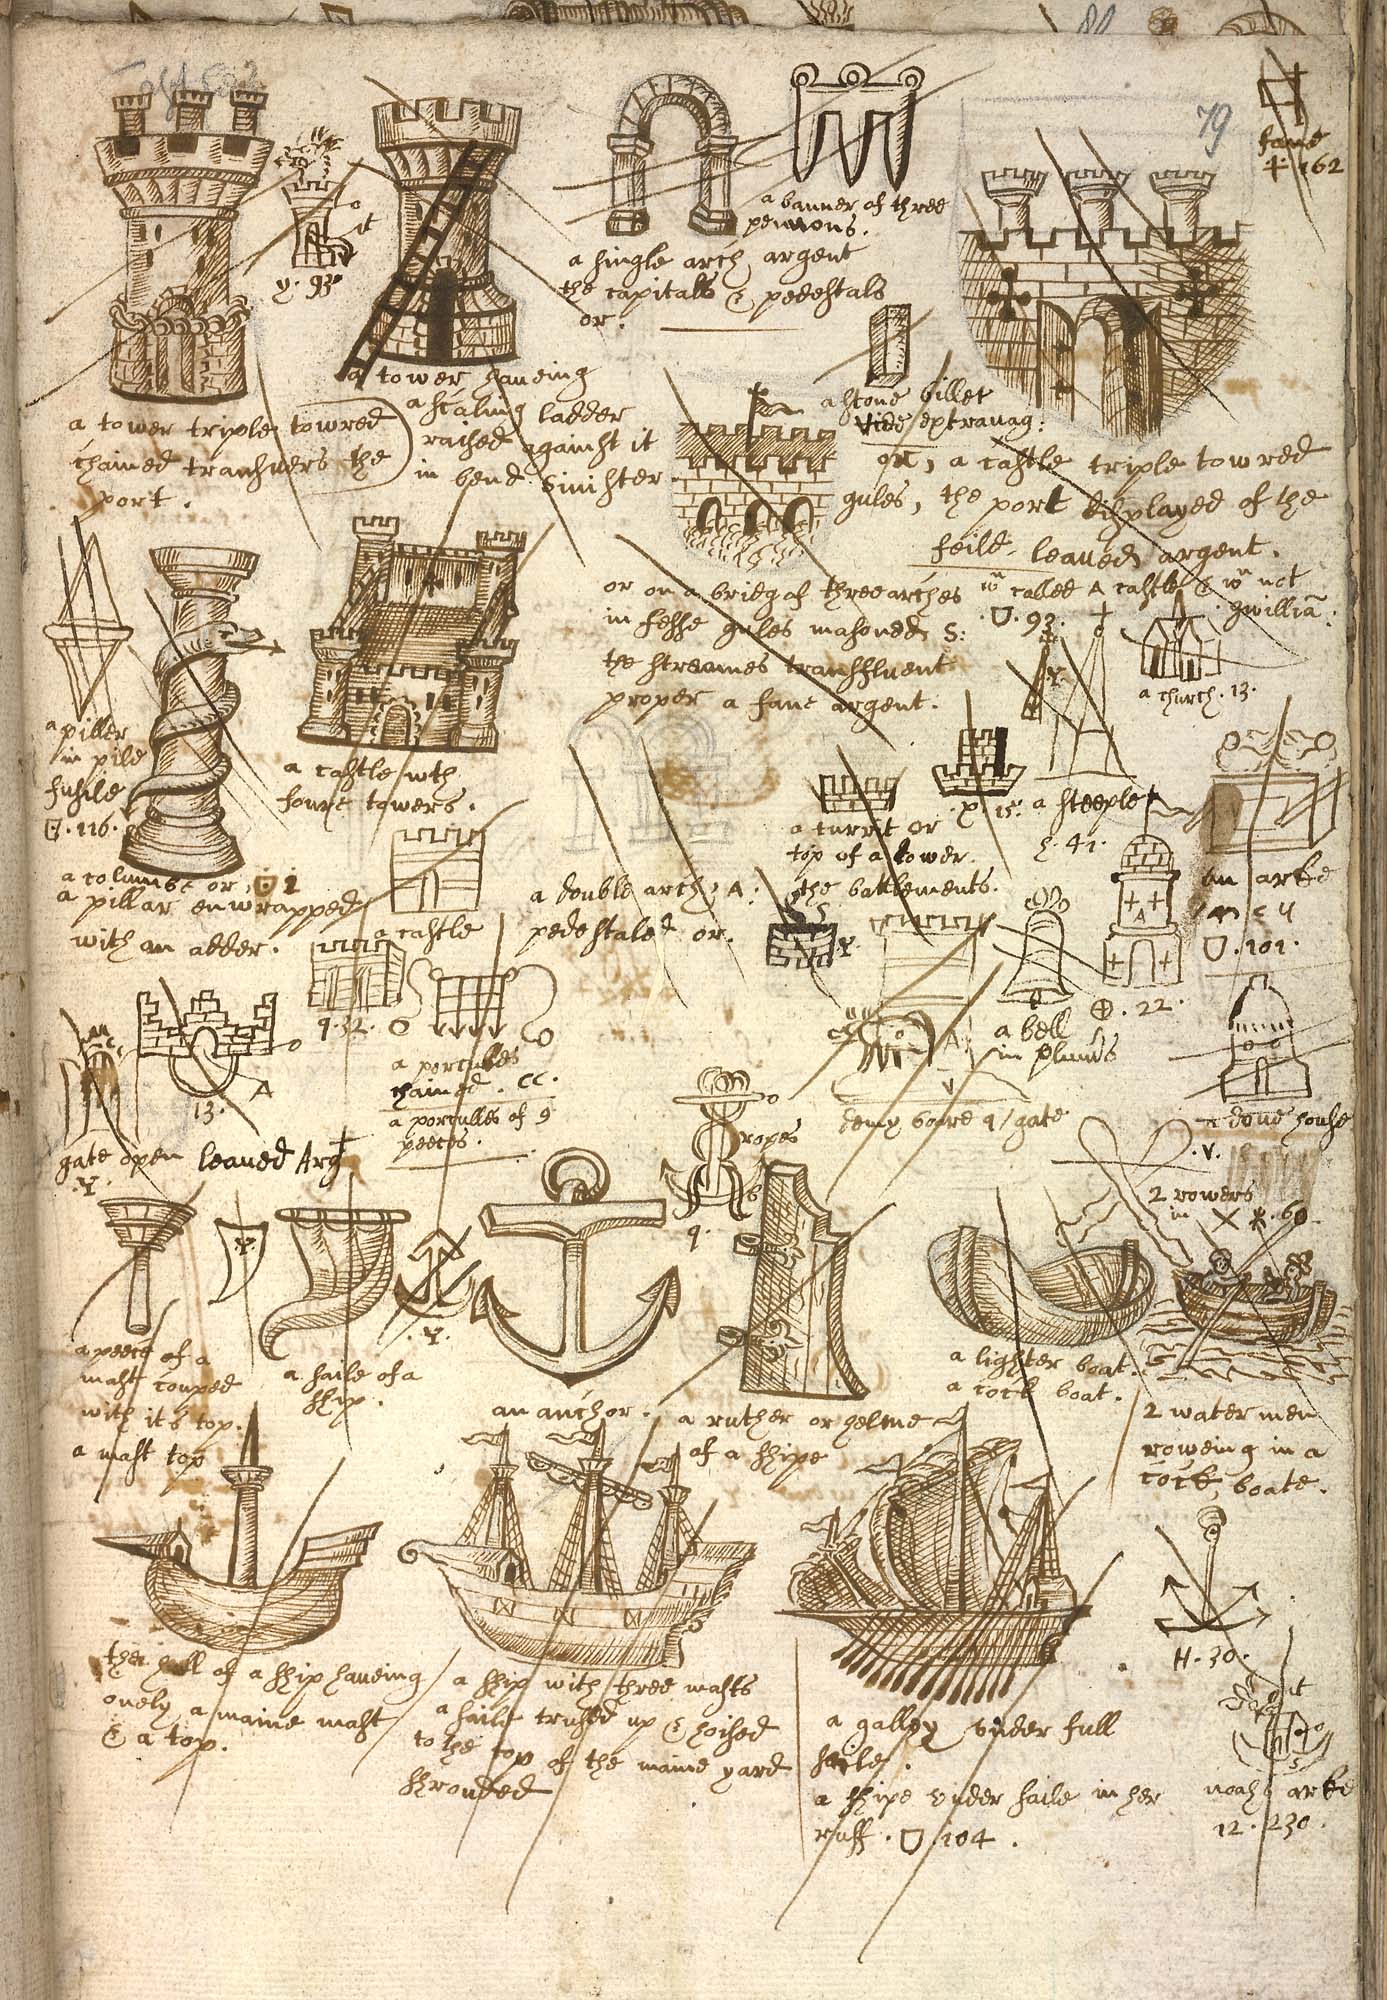 79
fane
162
a banner of three
pennons.
a single arch argent
the capitalls & pedestals
or.
y. 93
a tower haueing
a scaling ladder
raised against it
in bend sinister.
a tower triple towred
chained transuers the
port.
a stone billet
vide extrauag:
or, a castle triple towred
gules, the port displayed of the
feild, leaued argent.
called A castle & wn not
gwillia:
93.
or on a bridg of three arches
in fesse gules masoned S:
the streames transfluent
proper a fane argent.
a church. 13.
a piller
in pile
fusile
116.
a castle wth
foure towers.
15.
a steeple
41.
a turrit or
top of a tower.
the batlements.
a columbe or
a pillar enwrapped
with an adder.
a double arch, A:
pedestaled or.
an arke
101.
A
22.
a castle
9.32.
a bell
in plumis
a portculles
chained. CC.
a portculles of 9
peeces.
A
13.
A
V
demy boare q / gate
a doue house
gate open leaued Arg
Y.
ropes
9.
.V.
2 rowers
in X 60.
Y
.Y.
a peece of a
mast couped
with it's top.
a mast top
a saile of a
ship.
an anchor.
a ruther or helme
of a shipe
a lighter boat.
a cock boat.
2 water men
roweing in a
cock boate.
H.30.
the hull of a ship haueing
onely a maine mast
& a top.
a ship with three masts
a saile trused up & hoised
to the top of the maine yard
shrouded
a galley vnder full
saile.
a shipe vnder saile in her
ruff. 104.
noahs arke
12. 230.